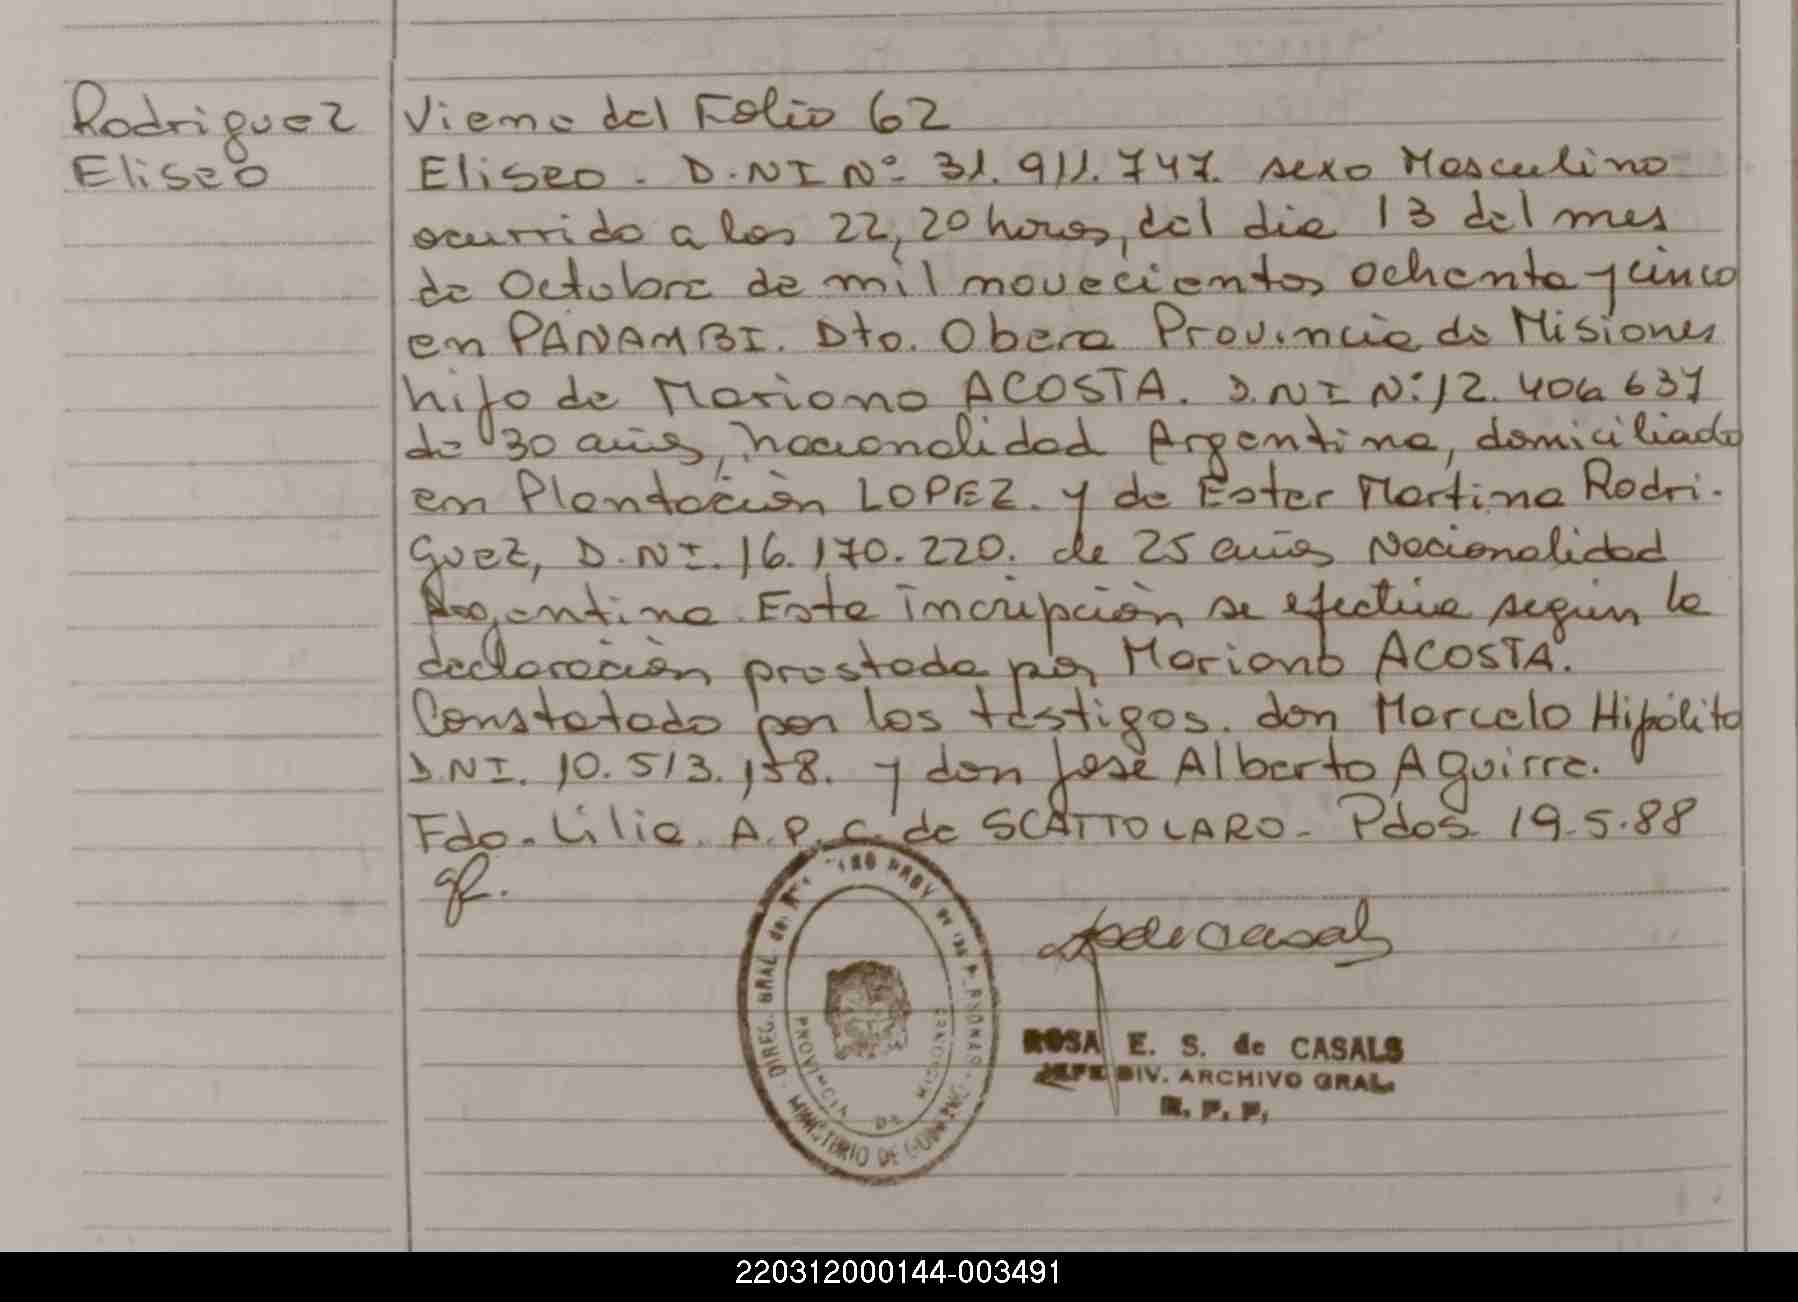 Rodriguez
Eliseo
Viene del Folio 62
Eliseo. D.NI Nº 31.911.747. sexo Masculino
ocurrido a las 22,20 horas, del dia 13 del mes
de Octubre de mil novecientos ochenta y cinco
en PANAMBI. Dto. Obera Provincia de Misiones
hijo de Mariano ACOSTA. D.NI Nº 12.406.637
de 30 años, nacionalidad Argentina, domiciliado
en Plantación LOPEZ. y de Ester Martina Rodri-
guez, D.NI. 16.170.220. de 25 años Nacionalidad
Argentina. Esta incripción se efectúa según la
declaración prestada por Mariano ACOSTA.
Constatado por los testigos. don Marcelo Hipólito
D.NI. 10.513.158. y don José Alberto Aguirre.
Fdo. Lilia. A.P.C. de SCATTOLARO - Pdos 19.5.88
DIREC. GRAL de PROV de las PERSONAS
MINISTERIO DE
PROVINCIA DE MISIONES
de Casals
ROSA E. S. de CASALS
JEFE DIV. ARCHIVO GRAL.
R. P. P.
220312000144-003491